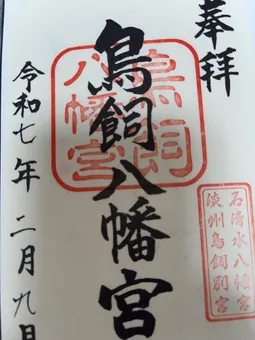 奉拝
鳥飼八幡宮
令和七年二月九日
鳥飼
八幡宮
石清水八幡宮
淡州鳥飼別宮